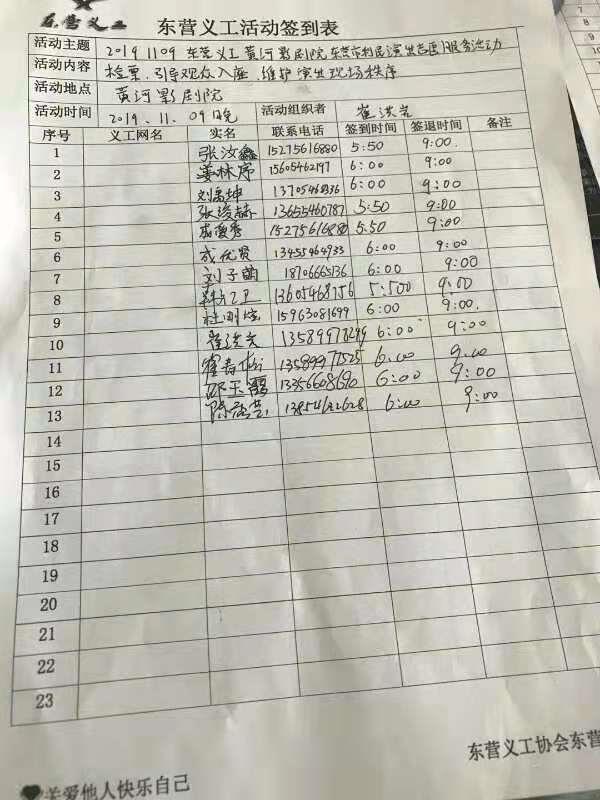 东营义工
东营义工活动签到表
活动主题 20191109 东营义工黄河影剧院东营市利民演出志愿服务活动
活动内容 检票、引导观众入座、维护演出现场秩序
活动地点 黄河影剧院
活动时间 2019.11.09晚 活动组织者 崔洪
序号 义工网名 实名 联系电话 签到时间 签退时间 备注
1 张汝鑫 15275616880 5:50 9:00.
2 姜林序 15605462197 6:00 9:00
3 刘禹坤 6:00 9:00
4 张浚赫 13655460787 5:50 9:00
5 5:50 9:00
6 成优贤 13455464933 6:00 9:00
7 刘子萌 18706665136 6:00 9:00
8 13605468756 9:00
9 15963081699 6:00 9:00.
10 崔洪 6:00 9:00
11 6:00 9:00
12 邱玉霞 13356608690 6:00 9:00
13 6:00 9:00
14
15
16
17
18
19
20
21
22
23
东营义工协会东营
关爱他人快乐自己